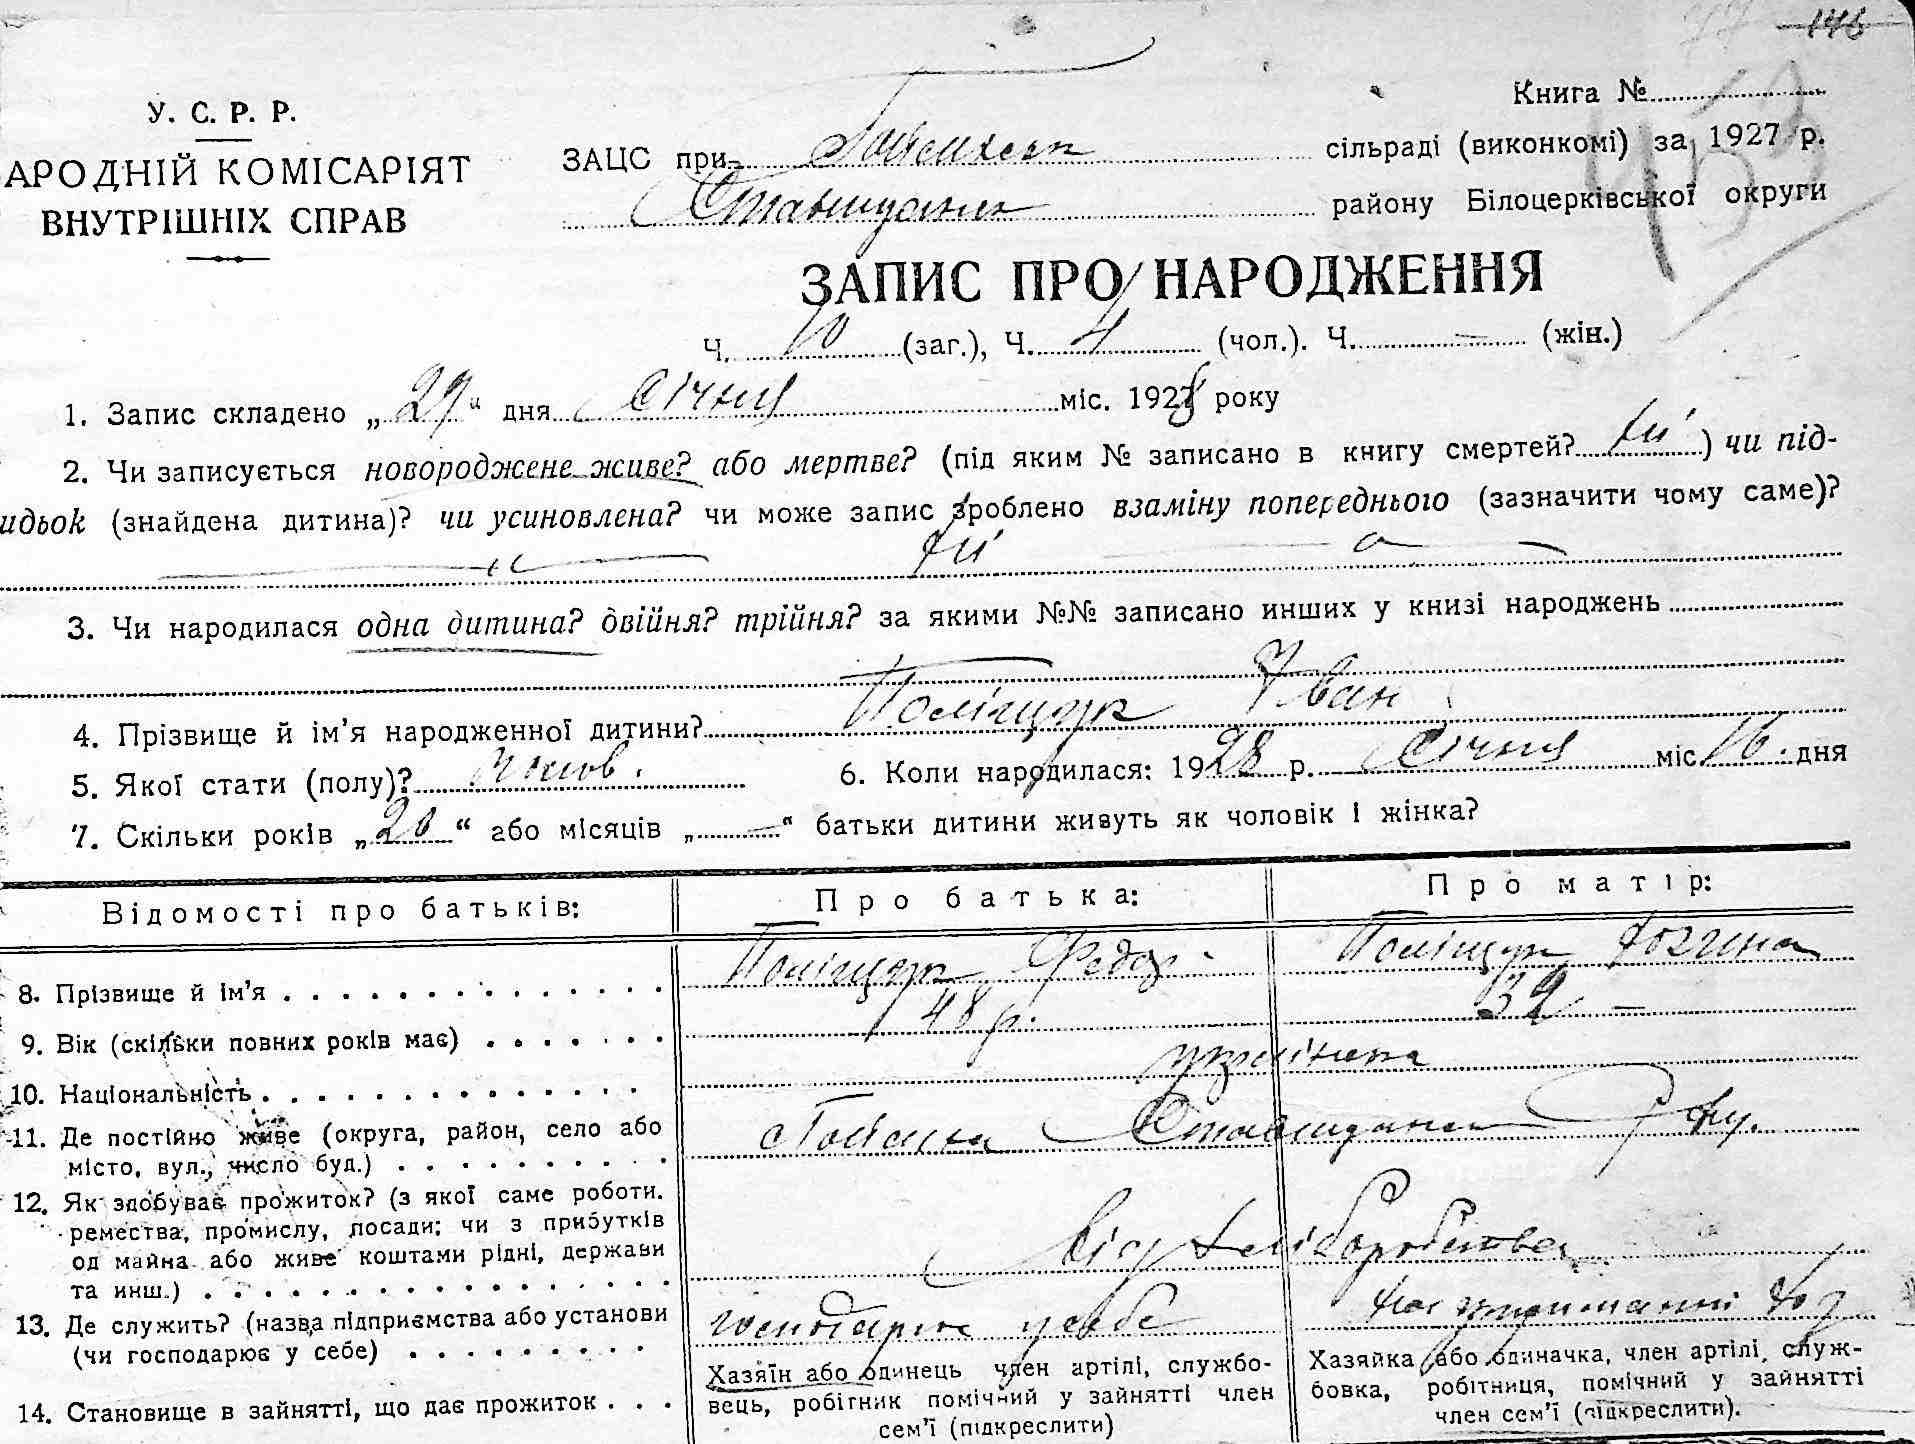 146
Книга №
У. С. Р. Р.
АРОДНІЙ КОМІСАРІЯТ
ВНУТРІШНІХ СПРАВ
ЗАЦС при сільраді (виконкомі) за 1927 р.
району Білоцерківської округи
153
ЗАПИС ПРО НАРОДЖЕННЯ
Ч. 10 (заг.), Ч. 4 (чол.). Ч. — (жін.)
1. Запис складено „29“ дня Січня міс. 1928 року
2. Чи записується новороджене живе? або мертве? (під яким № записано в книгу смертей? ні) чи під-
идьок (знайдена дитина)? чи усиновлена? чи може запис зроблено взаміну попереднього (зазначити чому саме)?
ні
3. Чи народилася одна дитина? двійня? трійня? за якими №№ записано инших у книзі народжень
4. Прізвище й ім'я народженної дитини? Поліщук Іван
5. Якої стати (полу)? чолов. 6. Коли народилася: 1928 р. Січня міс 16. дня
7. Скільки років „20“ або місяців „—“ батьки дитини живуть як чоловік і жінка?
Відомості про батьків: Про батька: Про матір:
8. Прізвище й ім'я Поліщук Федор Поліщук
9. Вік (скільки повних років має) 48 р. 39 —
10. Національність українська
11. Де постійно живе (округа, район, село або
місто, вул., число буд.)
12. Як здобуває прожиток? (з якої саме роботи.
ремества, промислу, посади; чи з прибутків
од майна або живе коштами рідні, держави
та инш.) від хліборобства
13. Де служить? (назва підприємства або установи
(чи господарює у себе) господарює у себе на утриманні
14. Становище в зайнятті, що дає прожиток
Хазяїн або одинець член артілі, службо-
вець, робітник помічний у зайнятті член
сем'ї (підкреслити)
Хазяйка або одиначка, член артілі, служ-
бовка, робітниця, помічний у зайнятті
член сем'ї (підкреслити).